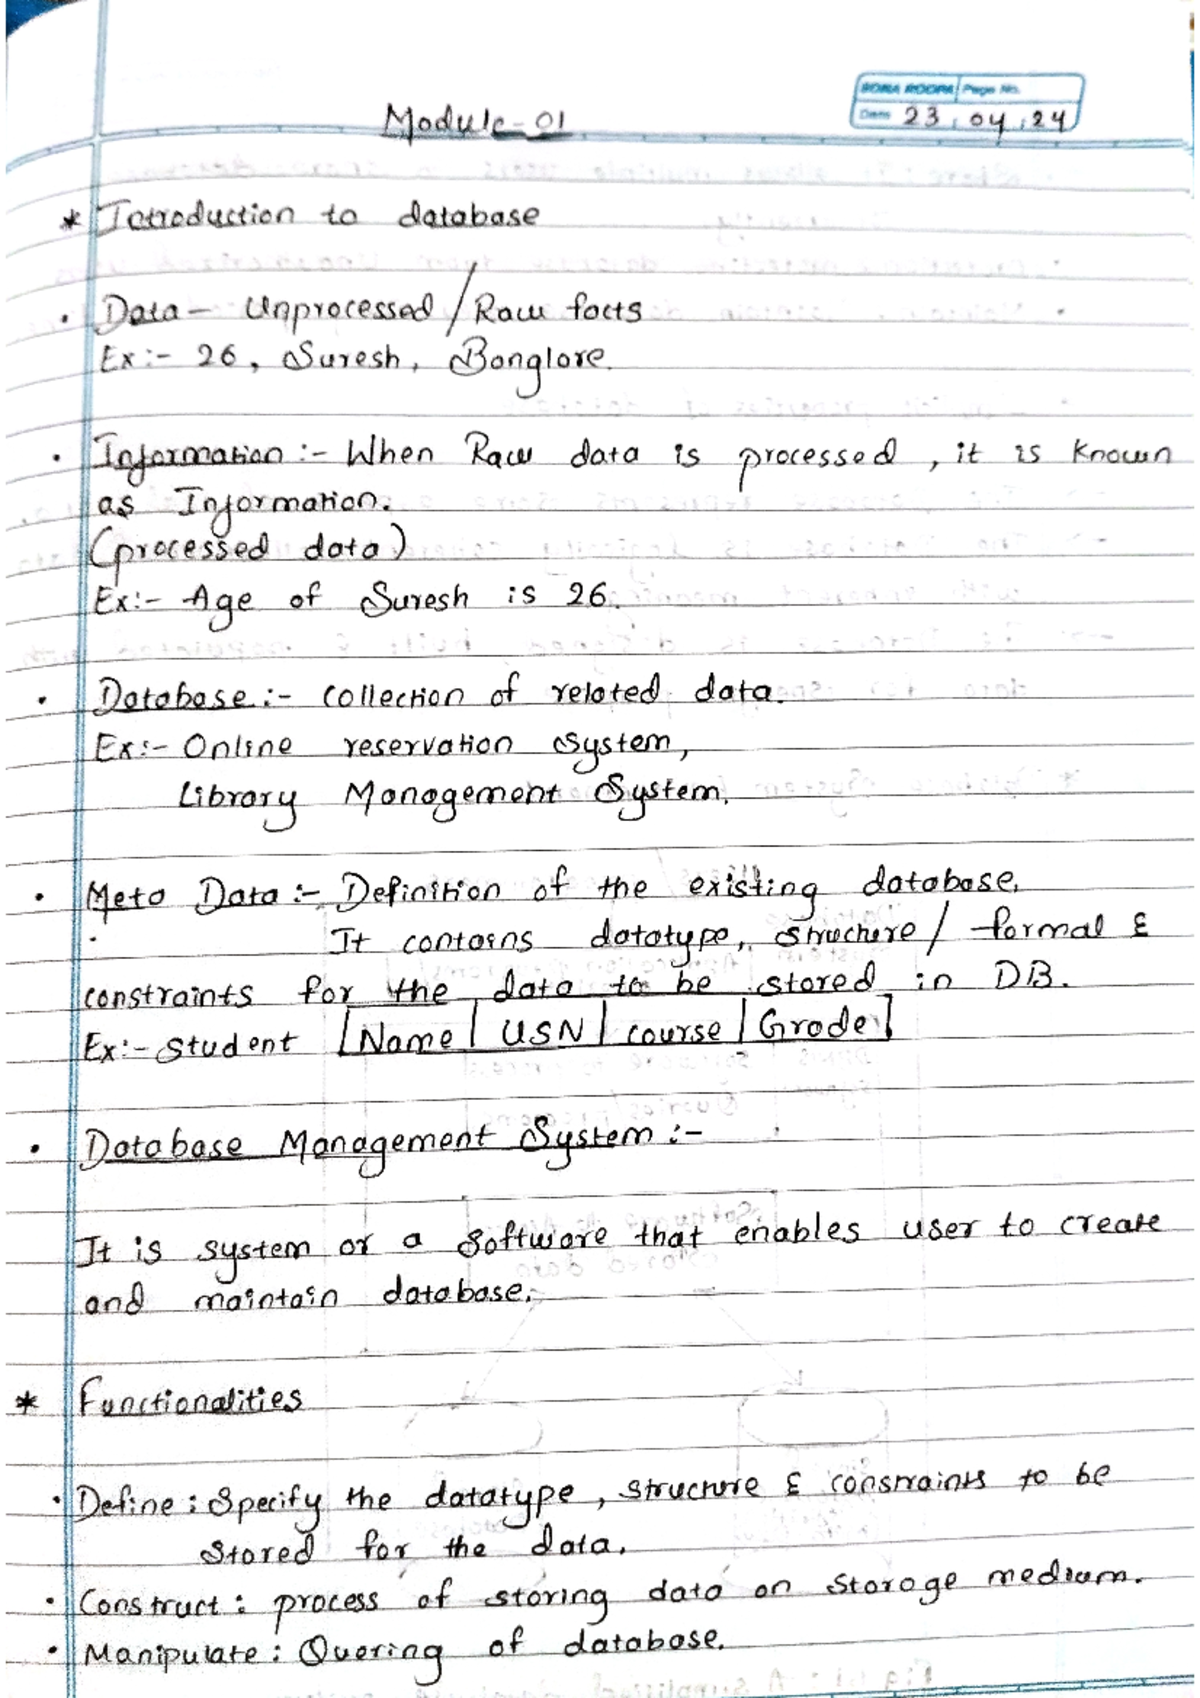 SONA ROOPA Page No.
Date 23, 04, 24
Module-01
* Iotroduction to database
• Data - Unprocessed / Raw facts
Ex:- 26, Suresh, Banglore.
• Information :- When Raw data is processed, it is known
as Information.
(processed data)
Ex:- Age of Suresh is 26.
• Database :- collection of related data.
Ex:- Online reservation system,
Library Management System.
• Meta Data :- Definition of the existing database.
It contains datatype, structure / format &
constraints for the data to be stored in DB.
Ex:- student | Name | USN | course | Grade |
• Database Management System :-
It is system or a software that enables user to create
and maintain database.
* Functionalities
• Define : Specify the datatype, structure & constraints to be
stored for the data.
• Construct : process of storing data on storage medium.
• Manipulate : Quering of database.